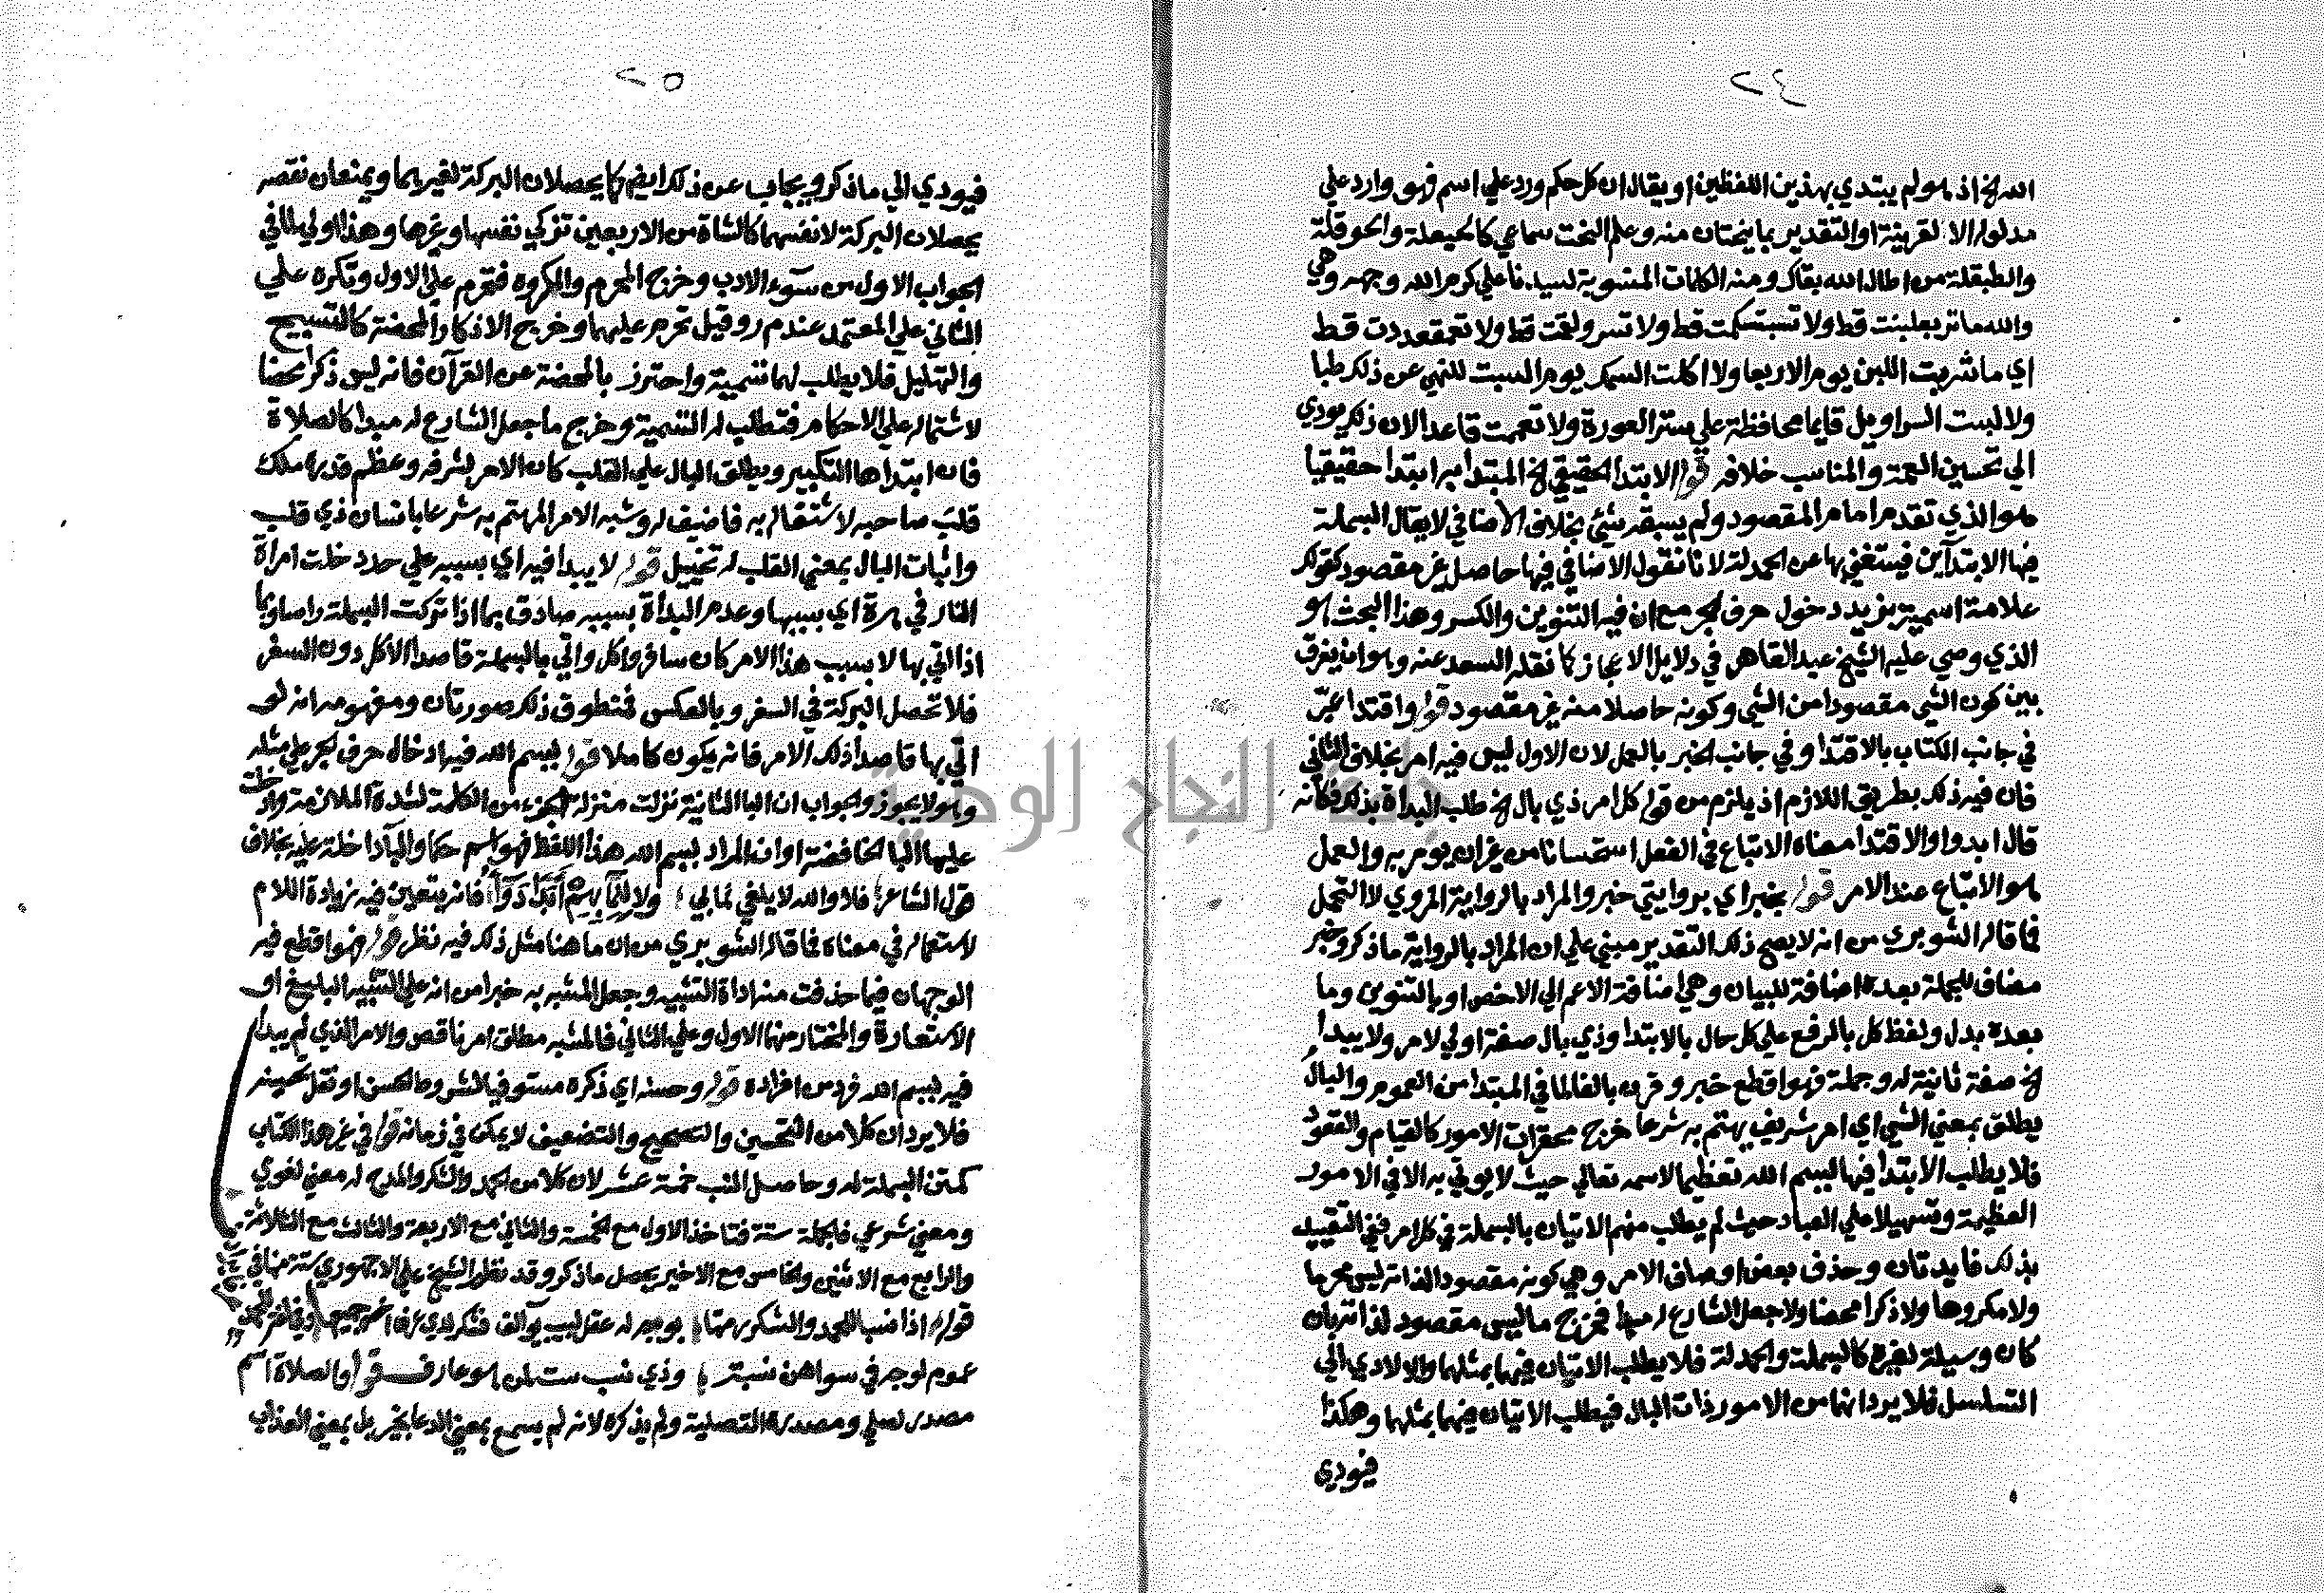 ٢٤
الله الخ اذ هو لم يبتدي بهذين اللفظين او يقال ان كل حكم ورد علي اسم فهو وارد علي
مدلوله الا لقرينة او التقدير بما ينحتان منه وعلم النحت سماعي كالحيعلة والحوقلة
والطبقلة من اطال الله بقاك ومنه الكلمات المنسوبة لسيدنا علي كرم الله وجهه وهي
والله ما تربعلبنت قط ولا تسبتسمكت قط ولا تسرولقمت قط ولا تعمقعددت قط
اي ما شربت اللبن يوم الاربعا ولا اكلت السمك يوم السبت للنهي عن ذلك طبا
ولا لبست السراويل قايما محافظة علي ستر العورة ولا تعممت قاعدا لان ذلك يودي
الي تحسين العمة والمناسب خلافه قوله الابتدا الحقيقي الخ المبتدا به ابتدا حقيقيا
هو الذي تقدم امام المقصود ولم يسبقه شيئ بخلاف الاضافي لا يقال البسملة
فيها الابتدآين فيستغني بها عن الحمدلة لانا نقول الاضافي فيها حاصل غير مقصود كقولك
علامة اسمية بزيد دخول حرف الجر مع ان فيه التنوين والكسر وهذا البحث هو
الذي وصي عليه الشيخ عبد القاهر في دلايل الاعجاز كما نقله السعد عنه وهو ان يفرق
بين كون الشي مقصودا من الشي وكونه حاصلا منه غير مقصود قوله واقتدا عبر
في جانب الكتاب بالاقتدا وفي جانب الخبر بالعمل لان الاول ليس فيه امر بخلاف الثاني
فان فيه ذلك بطريق اللازم اذ يلزم من قوله كل امر ذي بال الخ طلب البداة بذلك فكانه
قال ابدوا والاقتدا معناه الاتباع في الفعل استحسانا من غير ان يومر به والعمل
هو الاتباع عند الامر قوله بخبر اي بروايتي خبر والمراد بالرواية المروي لا التحمل
فما قاله الشوبري من انه لا يصح ذلك التقدير مبني علي ان المراد بالرواية ما ذكر وخبر
مضاف للجملة بعده اضافة للبيان وهي اضافة الاعم الي الاخص او بالتنوين وما
بعده بدل ولفظ كل بالرفع علي كل حال بالابتدا وذي بال صفة اولي لامر ولا يبدا
الخ صفة ثانية له وجملة فهو اقطع خبر وقرن بالفا لما في المبتدا من العموم والبال
يطلق بمعني الشي اي امر شريف يهتم به شرعا خرج محقرات الامور كالقيام والقعود
فلا يطلب الابتدأ فيها ببسم الله تعظيما لاسمه تعالي حيث لا يوتي به الا في الامور
العظيمة وتسهيلا علي العباد حيث لم يطلب منهم الاتيان بالبسملة في كل امر ففي التقييد
بذلك فايدتان وحذف بعض اوصاف الامر وهي كونه مقصودا لذاته ليس محرما
ولا مكروها ولا ذكرا محضا ولا جعل الشارع له مبدا فخرج ما ليس مقصود لذاته بان
كان وسيلة لغيره كالبسملة والحمدلة فلا يطلب الاتيان فيهما بمثلها والا لادي الي
التسلسل فلا يرد انهما من الامور ذات البال فيطلب الاتيان فيهما بمثلها وهكذا
فيودي
٢٥
فيودي الي ما ذكر ويجاب عن ذلك ايضا بانهما كما يحصلان البركة لغيرهما ويمنعان نقصه
يحصلان البركة لانفسهما كالشاة من الاربعين تزكي نفسها وغيرها وهذا اولي لما في
الجواب الاول من سوء الادب وخرج المحرم والمكروه فتحرم علي الاول وتكره علي
الثاني علي المعتمد عند م ر وقيل تحرم عليهما وخرج الاذكار المحضة كالتسبيح
والتهليل فلا يطلب لها تسمية واحترز بالمحضة عن القرآن فانه ليس ذكرا محضا
لاشتماله علي الاحكام فتطلب له التسمية وخرج ما جعل الشارع له مبدا كالصلاة
فان ابتداها التكبير ويطلق البال علي القلب كان الامر لشرفه وعظم قدره ملك
قلب صاحبه لاشتغاله به فاضيف له وشبه الامر المهتم به شرعا بانسان ذي قلب
واثبات البال بمعني القلب له تخييل قوله لا يبدا فيه اي بسببه علي حد دخلت امراة
النار في هرة اي بسببها وعدم البداة بسببه صادق بما اذا تركت البسملة راسا وبما
اذا اتي بها لا بسبب هذا الامر كان سافر واكل واتي بالبسملة قاصدا الاكل دون السفر
فلا تحصل البركة في السفر وبالعكس فمنطوق ذلك صورتان ومفهومه انه لو
اتي بها قاصدا ذلك الامر فانه يكون كاملا قوله ببسم الله فيه ادخال حرف الجر علي مثله
وهو لا يجوز والجواب ان البا الثانية نزلت منزلة الجزء من الكلمة لشدة الملازمة ودخلت
عليها البا الخافضة او ان المراد ببسم الله هذا اللفظ فهو اسم حكما والبآ داخلة عليه بخلاف
قول الشاعر فلا والله لا يلفي لما بي ولا للما بهم ابدا دوآ فانه يتعين فيه زيادة اللام
لاستعماله في معناه فما قاله الشوبري من ان ما هنا مثل ذلك فيه نظر قوله فهو اقطع فيه
الوجهان فيما حذفت منه اداة التشبيه وجعل المشبه به خبرا من انه علي التشبيه البليغ او
الاستعارة والمختار منهما الاول وعلي الثاني فالمشبه مطلق امر ناقص والامر الذي لم يبدا
فيه ببسم الله فرد من افراده قوله وحسنه اي ذكره مستوفيا لشروط الحسن او نقل تحسينه
فلا يرد ان كلا من التحسين والتصحيح والتضعيف لا يمكن في زمانه قوله في غير هذا الكتاب
كمتن البسملة له وحاصل النسب خمسة عشر لان كلا من الحمد والشكر والمدح له معني لغوي
ومعني شرعي فالجملة ستة فتاخذ الاول مع الخمسة والثاني مع الاربعة والثالث مع الثلاثة
والرابع مع الاثنين والخامس مع الاخير يحصل ما ذكر وقد نظم الشيخ علي الاجهوري ستة منها في
قوله اذا نسبا للحمد والشكر رمتها بوجه له عقل لبيب يوآلف فشكر لدي عرف اخص جميعها
عموم لوجه في سواهن نسبة وذي نسب ست لمن هو عارف قوله والصلاة اسم
مصدر لصلي ومصدره التصلية ولم يذكره لانه لم يسمع بمعني الدعا بخير بل بمعني العذاب
جامعة النجاح الوطنية